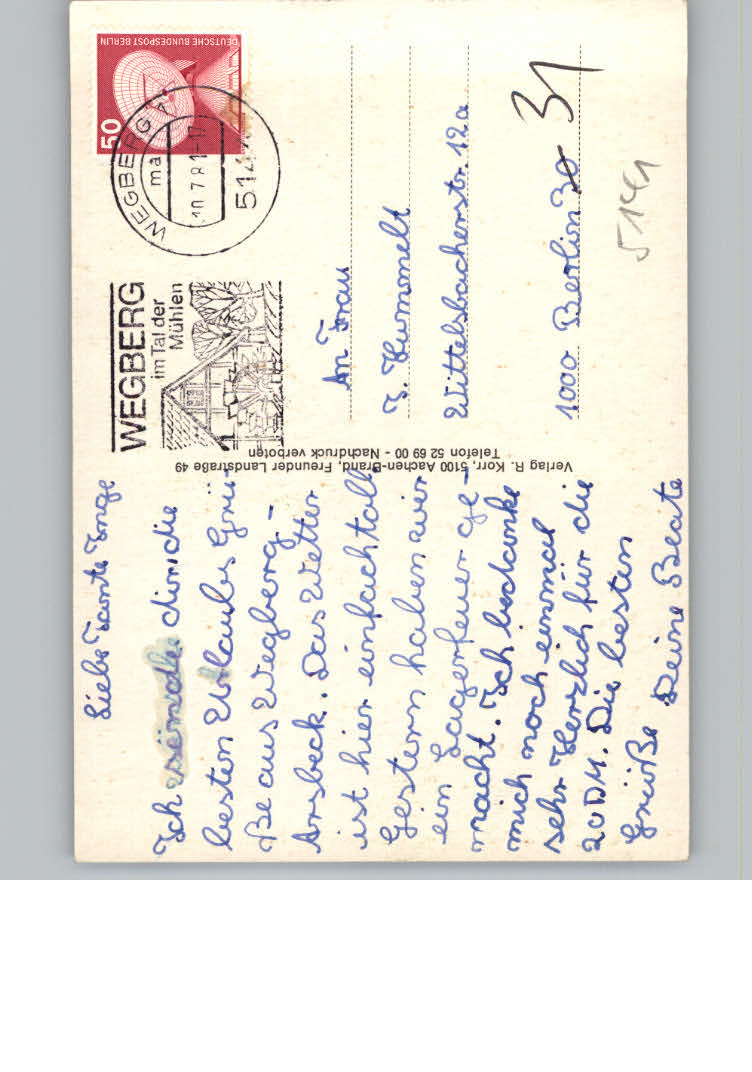 Liebe Tante Inge
Ich sende dir die
besten Urlaubs Grü-
ße aus Wegberg-
Arsbeck. Das Wetter
ist hier einfach toll.
Gestern haben wir
ein Lagerfeuer ge-
macht. Ich bedanke
mich noch einmal
sehr Herzlich für die
20DM. Die besten
Grüße Deine Beate
Verlag R. Korr, 5100 Aachen-Brand, Freunder Landstraße 49
Telefon 52 69 00 - Nachdruck verboten
WEGBERG
im Tal der
Mühlen
WEGBERG
ma
10.7.81-17
514
50
DEUTSCHE BUNDESPOST BERLIN
An Frau
I. Hummelt
Wittelsbacherstr. 12a
1000 Berlin 30 31
5141